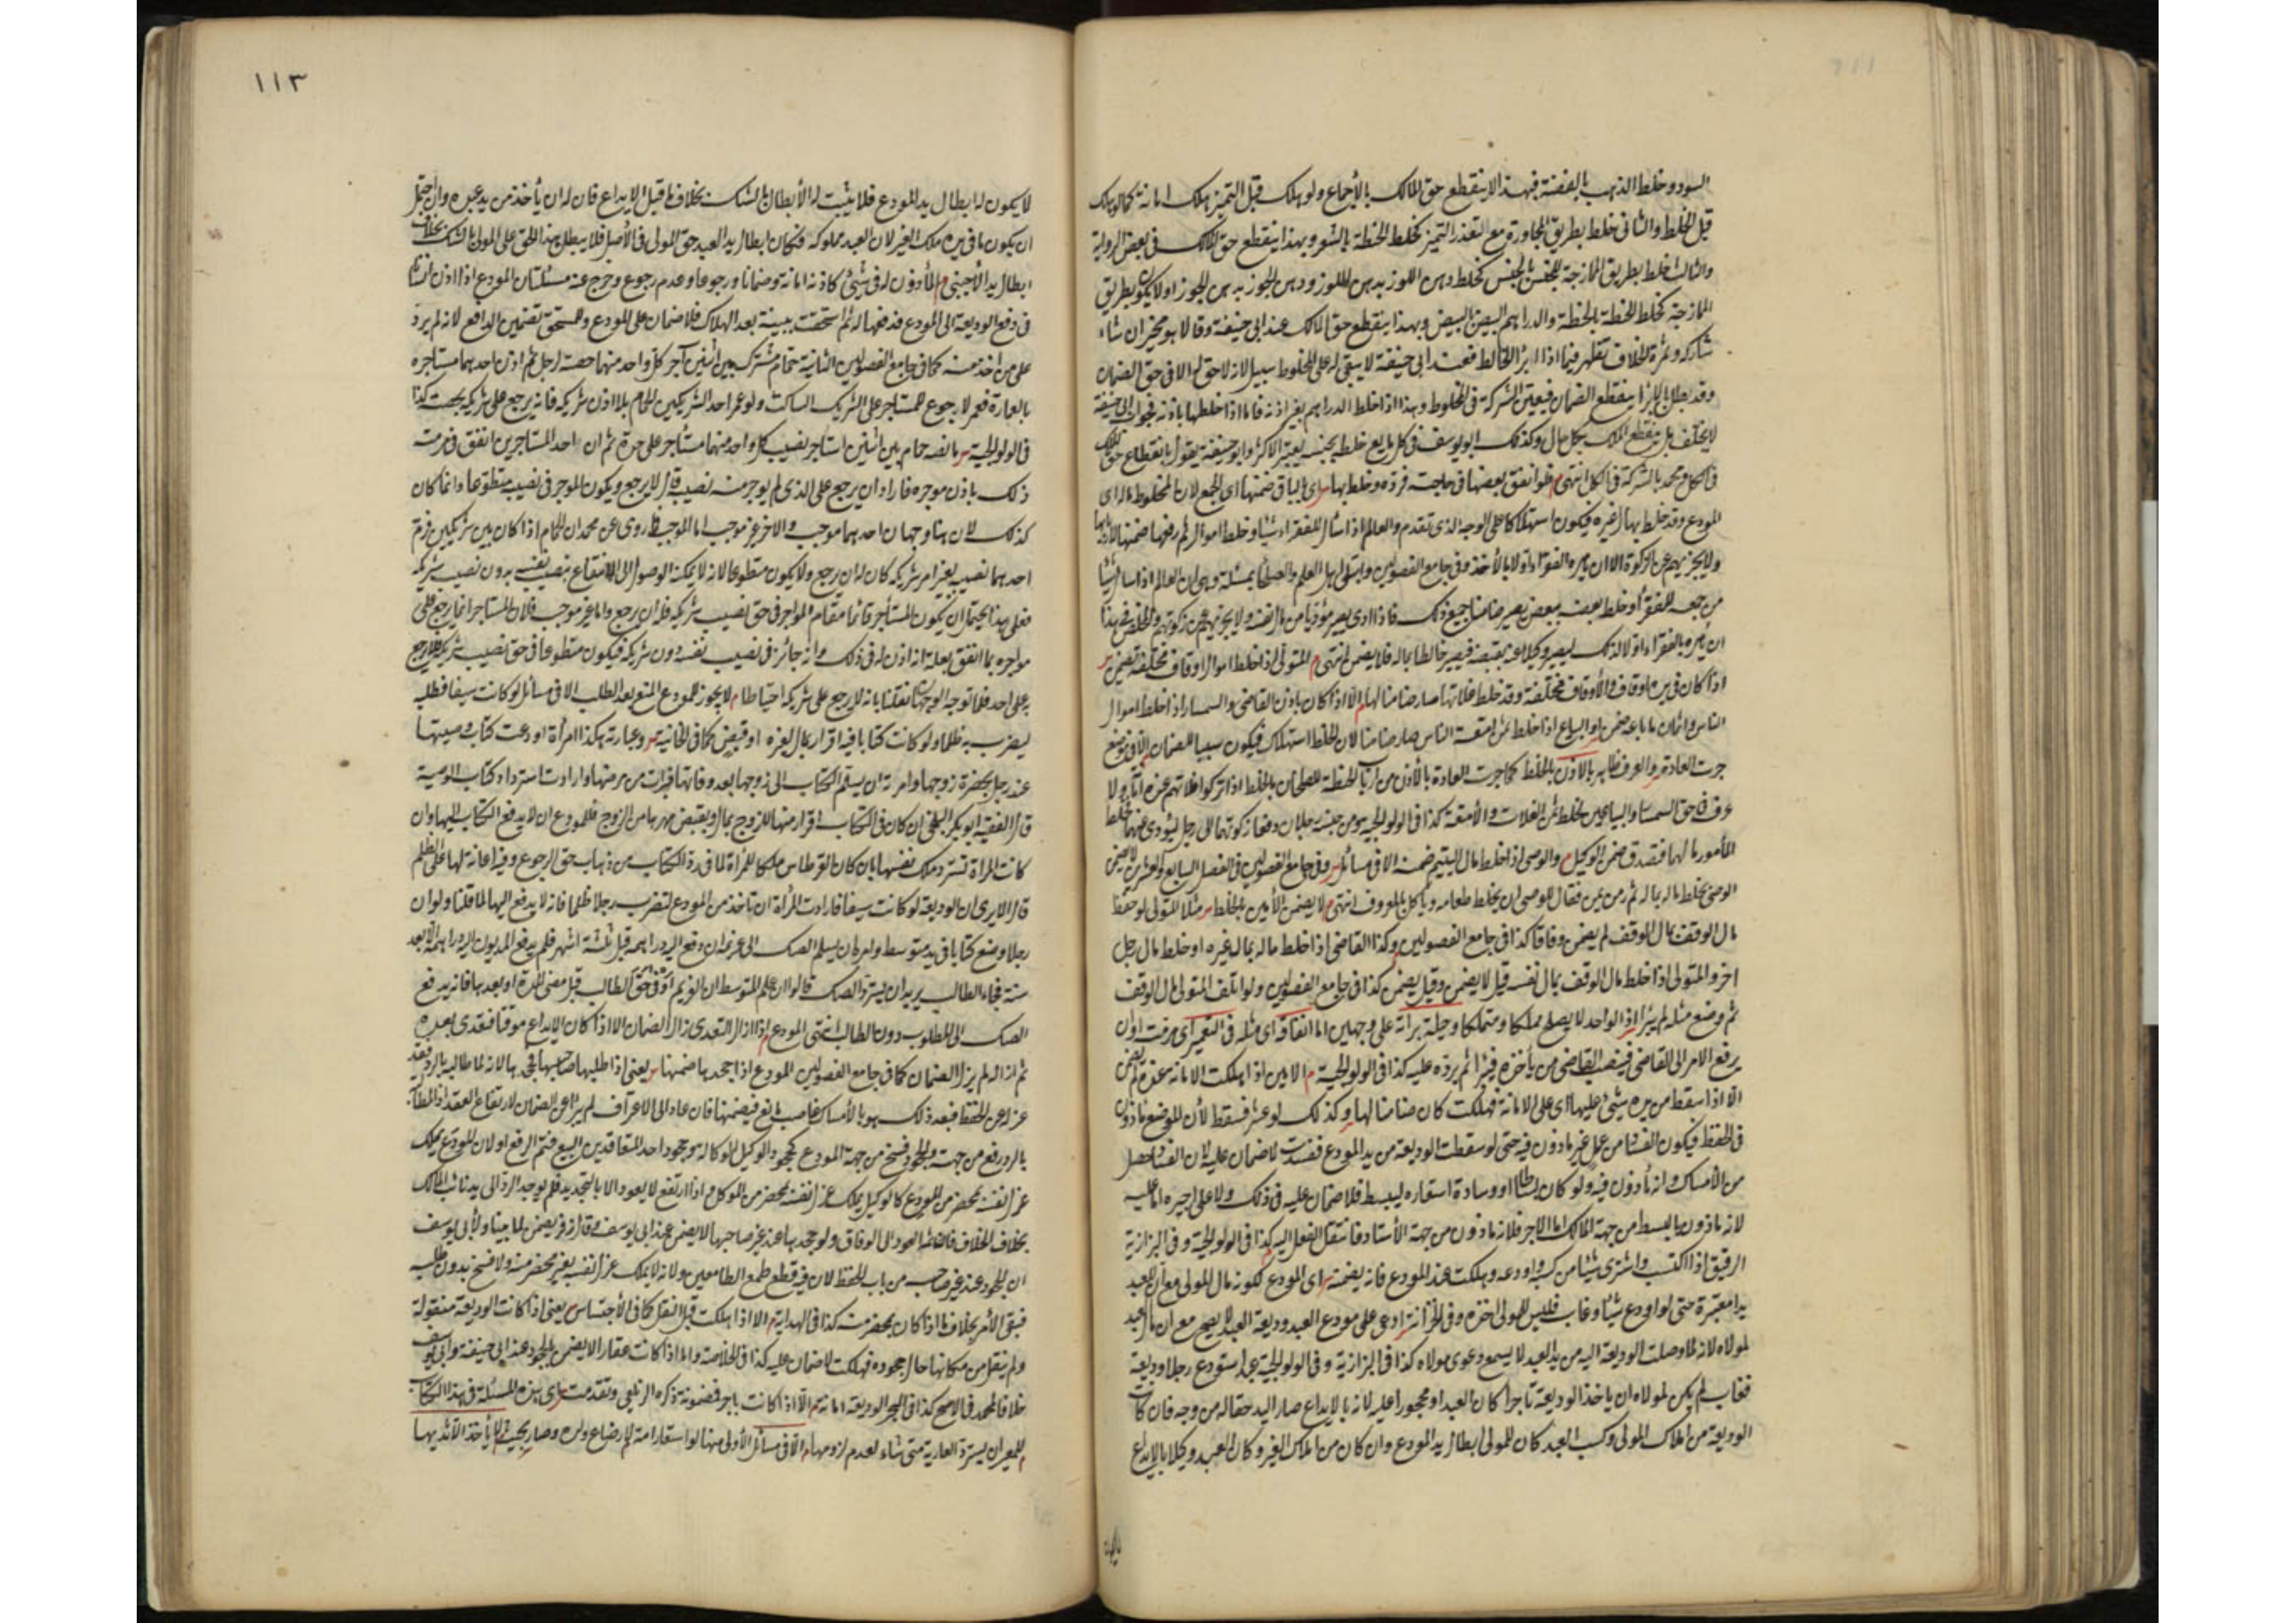 السود وخلط الذهب بالفضة فهذا لا ينقطع حق المالك بالأجماع ولو هلك قبل التميز هلك امانة كما لو هلك
قبل الخلط والثانى خلط بطريق المجاورة مع التعذر التميز كخلط الحنطة بالشعير وبهذا ينقطع حق المالك فى بعض الرواية
والثالث خلط بطريق الممازجة للجنس بالجنس كخلط دهن اللوز بدهن اللوز ودهن الجوز بدهن الجوز اولا يكون بطريق
الممازجة كخلط الحنطة بالحنطة والدراهم البيض بالبيض وبهذا ينقطع حق المالك عند ابى حنيفة وقالا هو مخير ان شاء
شاركه وثمرة الخلاف تظهر فيما اذا ابرأ الخالط فعند ابى حنيفة لا يبقى له على المخلوط سبيل لانه لا حق له الا فى حق الضمان
وقد بطل بالابراء ينقطع الضمان فيعين الشركة فى المخلوط وهذا اذا خلط الدراهم بغير اذنه فاما اذا خلطها باذنه فجواب ابى حنيفة
لا يختلف بل ينقطع الملك بكل حال وكذلك ابو يوسف فى كل مايع خلط بجنسه يعتبر الاكثر وابو حنيفة يقول بانقطاع حق المالك
فى الكل ومحمد بالشركة فى الكل انتهى م فلو انفق بعضها فى حاجته فرده وخلط بها س اى بالباقى ضمنها اى الجميع لان المخلوط ماله اى
المودع وقد خلط بمال غيره فيكون استهلاكا على الوجه الذى تقدم والعالم اذا سأل للفقراء شيئا وخلط اموالهم ثم دفعها ضمنها لاربابها
ولا يجزيهم عن الزكوة الا ان يامره الفقراء اولا بالأخذ وفى جامع الفصولين وابتلى اهل العلم والصلحا بمسئلة وهى ان العالم اذا سأل شيئا
من جمعه للفقراء وخلط بعضه ببعض يصير ضامنا جميع ذلك فاذا ادى يصير مؤديا من مال نفسه ولا يجزيهم عن زكوتهم والمخلص فى هذا
ان يامره الفقراء اولا لذلك ليصير وكيلا عنه بقبضه فيصير خالطا ماله بماله فلا يضمن انتهى م المتولى اذا خلط اموال اوقاف مختلفة يضمن س
اذا كان فى يده اوقاف والأوقاف مختلفة وقد خلط غلاتها صار ضامنا لها م الا اذا كان باذن القاضى والسمسار اذا خلط اموال
الناس واثمان ما باعه ضمن او البياع اذا خلط ثمن امتعة الناس صار ضامنا لان الخلط استهلاك فيكون سببا للضمان الا فى موضع
جرت العادة س والعرف ظاهر بالاذن بالخلط كما جرت العادة بالأذن من ارباب الحنطة للطحان بالخلط اذا تركوا غلاتهم عنده اما ولا
عرف فى حق السمسار والبياعين بخلط ثمن الغلات والأمتعة كذا فى الولوالجية ومن جنسه رجلان دفعا زكوتهما الى رجل ليؤدى عنهما فخلط
المأمور مالهما فتصدق ضمن الوكيل م والوصى اذا خلط مال اليتيم ضمنه الا فى مسائل س وفى جامع الفصولين فى الفصل السابع والعشرين لا يضمن
الوصى بخلط ماله بماله ثم رمز من فقال للوصى ان يخلط طعامه ويأكل بالمعروف انتهى م لا يضمن الأمين بالخلط س مثلا المتولى لو خلط
مال الوقف بمال الوقف لم يضمن وفاقا كذا فى جامع الفصولين م وكذا القاضى اذا خلط ماله بمال غيره او خلط مال رجل
اخر والمتولى اذا خلط مال الوقف بمال نفسه قيل لا يضمن وقيل يضمن كذا فى جامع الفصولين ولو اتلف المتولى مال الوقف
ثم وضع مثله لم يبرأ اذ الواحد لا يصلح مملكا ومتملكا وحيلة براءته على وجهين اما انفاقه اى مثله فى التعمير اى مرمته اوان
يرفع الامر الى القاضى فينصب القاضى من يأخذه فيبرأ ثم يرده عليه كذا فى الولوالجية م الامين اذا هلكت الامانة عنده لم يضمن
الا اذا سقط من يده شيئ عليها اى على الامانة فهلكت كان ضامنا لها س وكذلك لو عثر فسقط لأن الموضع ماذون
فى الحفظ فيكون الفساد من عمل غير ماذون فيه حتى لو سقطت الوديعة من يد المودع ففسدت لا ضمان عليه لان الفساد حصل
من الأمساك وانه مأذون فيه ولو كان بساطا او وسادة استعاره ليبسط فلا ضمان عليه فى ذلك ولا على اجيره اما عليه
لانه ماذون بالبسط من جهة المالك اما الاجير فلانه ماذون من جهة الأستاد فانتقل الفعل اليه كذا فى الولوالجية وفى البزازية
الرقيق اذا اكتسب واشترى شيئا من كسبه واودعه وهلكت عند المودع فانه يضمنه س اى المودع لكونه مال المولى مع ان للعبد
يدا معتبرة حتى لو اودع شيئا وغاب فليس للمولى اخذه وفى الخزانة ادعى على مودع العبد وديعة العبد لا يصح مع ان مال العبد
لمولاه لانه لما وصلت الوديعة اليه من يد العبد لا يسمع دعوى مولاه كذا فى البزازية وفى الولوالجية عبد استودع رجلا وديعة
فغاب لم يكن لمولاه ان ياخذ الوديعة تاجرا كان العبد او محجورا عليه لانه بالايداع صار اليد حقاله من وجه فان كانت
الوديعة من املاك المولى وكسب العبد كان للمولى ابطال يد المودع وان كان من املاك الغير وكان العبد وكيلا بالايداع
لا يكون
١١٣
لا يكون له ابطال يد المودع فلا يثبت له الأبطال بالشك بخلاف ما قبل الايداع فان له ان يأخذ من يد عبده وان احتمل
ان يكون ما فى يده ملك الغير لان العبد مملوكه فكان ابطال يد العبد حق المولى فى الأصل فلا يبطل هذا الحق على المولى بالشك بخلاف
ابطال يد الأجنبى م المأذون له فى شيئ كاذنه امانة وضمانا ورجوعا وعدم رجوع وخرج عنه مسئلتان المودع اذا اذن انسانا
فى دفع الوديعة الى المودع فدفعها له ثم استحقت ببينة بعد الهلاك فلا ضمان على المودع وللمستحق تضمين الدافع لانه لم يرد
على من اخذ منه كما فى جامع الفصولين الثانية حمام مشترك بين اثنين آجر كل واحد منهما حصته لرجل ثم اذن احدهما مستاجره
بالعمارة فعمر لا رجوع للمستاجر على الشريك الساكت ولو عمر احد الشريكين الحمام بلا اذن شريكه فانه يرجع على شريكه بحصته كذا
فى الولوالجية س ما نصه حمام بين اثنين استاجر نصيب كل واحد منهما مستأجر على حدة ثم ان احد المستاجرين انفق فى مرمته
ذلك باذن موجره فاراد ان يرجع على الذى لم يوجر منه نصيبه قال لا يرجع ويكون الموجر فى نصيبه متطوعا وانما كان
كذلك لان هنا وجهان احدهما موجب والاخر غير موجب اما الموجب ما روى عن محمد ان الحمام اذا كان بين شريكين فرم
احدهما نصيبه بغير امر شريكه كان له ان يرجع ولا يكون متطوعا لانه لا يمكنه الوصول الى الانتفاع بنصيب نفسه بدون نصيب شريكه
فعلى هذا يحتمل ان يكون المستأجر قائما مقام المواجر فى حق نصيب شريكه فله ان يرجع واما غير موجب فلان المستاجر انما يرجع على
مواجره بما انفق بعلة انه اذن له فى ذلك وانه جائز فى نصيب نفسه دون شريكه فيكون متطوعا فى حق نصيب شريكه فلا يرجع
به على احد فلما توجه الوجهان نقلنا بانه لا يرجع على شريكه احتياطا م لا يجوز للمودع المنع بعد الطلب الا فى مسائل لو كانت سيفا فطلبه
ليضرب به ظلما ولو كانت كتابا فيه اقرار بمال لغيره او قبض كما فى الخانية س وعبارته هكذا امرأة اودعت كتاب وصيتها
عند رجل بحضرة زوجها وامرته ان يسلم الكتاب الى زوجها بعد وفاتها فبرات من مرضها وارادت استرداد كتاب الوصية
قال الفقيه ابو بكر البلخى ان كان فى الكتاب اقرار منها للزوج بمال او بقبض مهرها من الزوج فللمودع ان لا يدفع الكتاب اليها وان
كانت المرأة تسترد ملك نفسها بان كان القرطاس ملكا للمرأة لما فى رد الكتاب من ذهاب حق الرجوع وفيه اعانة لها على الظلم
قال الا يرى ان الوديعة لو كانت سيفا فارادت المرأة ان تاخذ من المودع لتضرب رجلا ظلما فانه لا يدفع اليها لما قلنا ولو ان
رجلا وضع كتابا فى يد متوسط وامره ان يسلم الصك الى غريمه ان دفع الدراهم قبل ثلثة اشهر فلم يدفع المديون الدراهم الا بعد
سنة فجاء الطالب يريد ان يسترد الصك قالوا ان علم المتوسط ان الغريم اوفى حق الطالب قبل مضى المدة او بعدها فانه يدفع
الصك الى المطلوب دون الطالب انتهى المودع م اذا ازال التعدى زال الضمان الا اذا كان الايداع موقتا فتعدى بعده
ثم ازاله لم يزل الضمان كما فى جامع الفصولين المودع اذا جحدها ضمنها س يعنى اذا طلبها صاحبها فجحدها لانه لما طالبه بالرد فقد
عزله عن الحفظ فبعد ذلك هو بالأمساك غاصب مانع فيضمنها فان عاد الى الاعتراف لم يبرأ عن الضمان لارتفاع العقد اذ المطالبة
بالرد رفع من جهته والجحود فسخ من جهة المودع كجحود الوكيل الوكالة وجحود احد المتعاقدين البيع فتم الرفع او لان المودع يملك
عزل نفسه بمحضر من المودع كالوكيل يملك عزل نفسه بمحضر من الموكل واذا ارتفع لا يعود الا بالتجديد فلم يوجد الرد الى يد نائب المالك
بخلاف الخلاف فانه ثم العود الى الوفاق ولو جحدها عند غير صاحبها لا يضمن عند ابى يوسف وقال زفر يضمن لما بينا ولأبى يوسف
ان الجحود عند غير صاحبه من باب الحفظ لان فيه قطع طمع الطامعين ولانه لا يملك عزل نفسه بغير محضر منه ولا فسخ بدون طلبه
فبقى الأمر بخلاف ما اذا كان بمحضر منه كذا فى الهداية م الا اذا هلكت قبل النقل كما فى الأجناس س يعنى اذا كانت الوديعة منقولة
ولم ينقل من مكانها حال جحوده فهلكت لا ضمان عليه كذا فى الخلاصة واما اذا كانت عقارا لا يضمن بالجحود عند ابى حنيفة وابى يوسف
خلافا لمحمد فى الاصح كذا فى البحر الوديعة امانة م الا اذا كانت باجر فمضمونة ذكره الزيلعى وتقدمت س اى هذه المسئلة فى هذا الكتاب
م للمعير ان يسترد العارية متى شاء لعدم لزومها م الا فى مسائل الأولى منها لو استعار امة لارضاع ولده وصار بحيث لا يأخذ الا ثديها